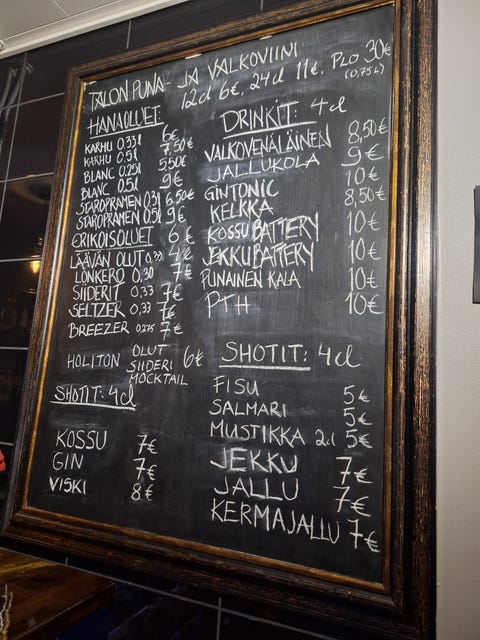 TALON PUNA- JA VALKOVIINI
12cl 6€, 24cl 11€, PLO 30€
(0,75L)
HANAOLUET:
KARHU 0.33l 6€
KARHU 0.5l 7,50€
BLANC 0.25l 5,50€
BLANC 0.5l 9€
STAROPRAMEN 0.3l 6,50€
STAROPRAMEN 0.5l 9€
ERIKOISOLUET 6€
LÄÄVÄN OLUT 0.33 4€
LONKERO 0,30 7€
SIIDERIT 0,33 7€
SELTZER 0,33 7€
BREEZER 0,275 7€
HOLITON OLUT
SIIDERI 6€
MOCKTAIL
SHOTIT: 4cl
KOSSU 7€
GIN 7€
VISKI 8€
DRINKIT: 4cl
VALKOVENÄLÄINEN 8,50€
JALLUKOLA 9€
GINTONIC 10€
KELKKA 8,50€
KOSSU BATTERY 10€
JEKKU BATTERY 10€
PUNAINEN KALA 10€
PTH 10€
SHOTIT: 4cl
FISU 5€
SALMARI 5€
MUSTIKKA 2cl 5€
JEKKU 7€
JALLU 7€
KERMAJALLU 7€